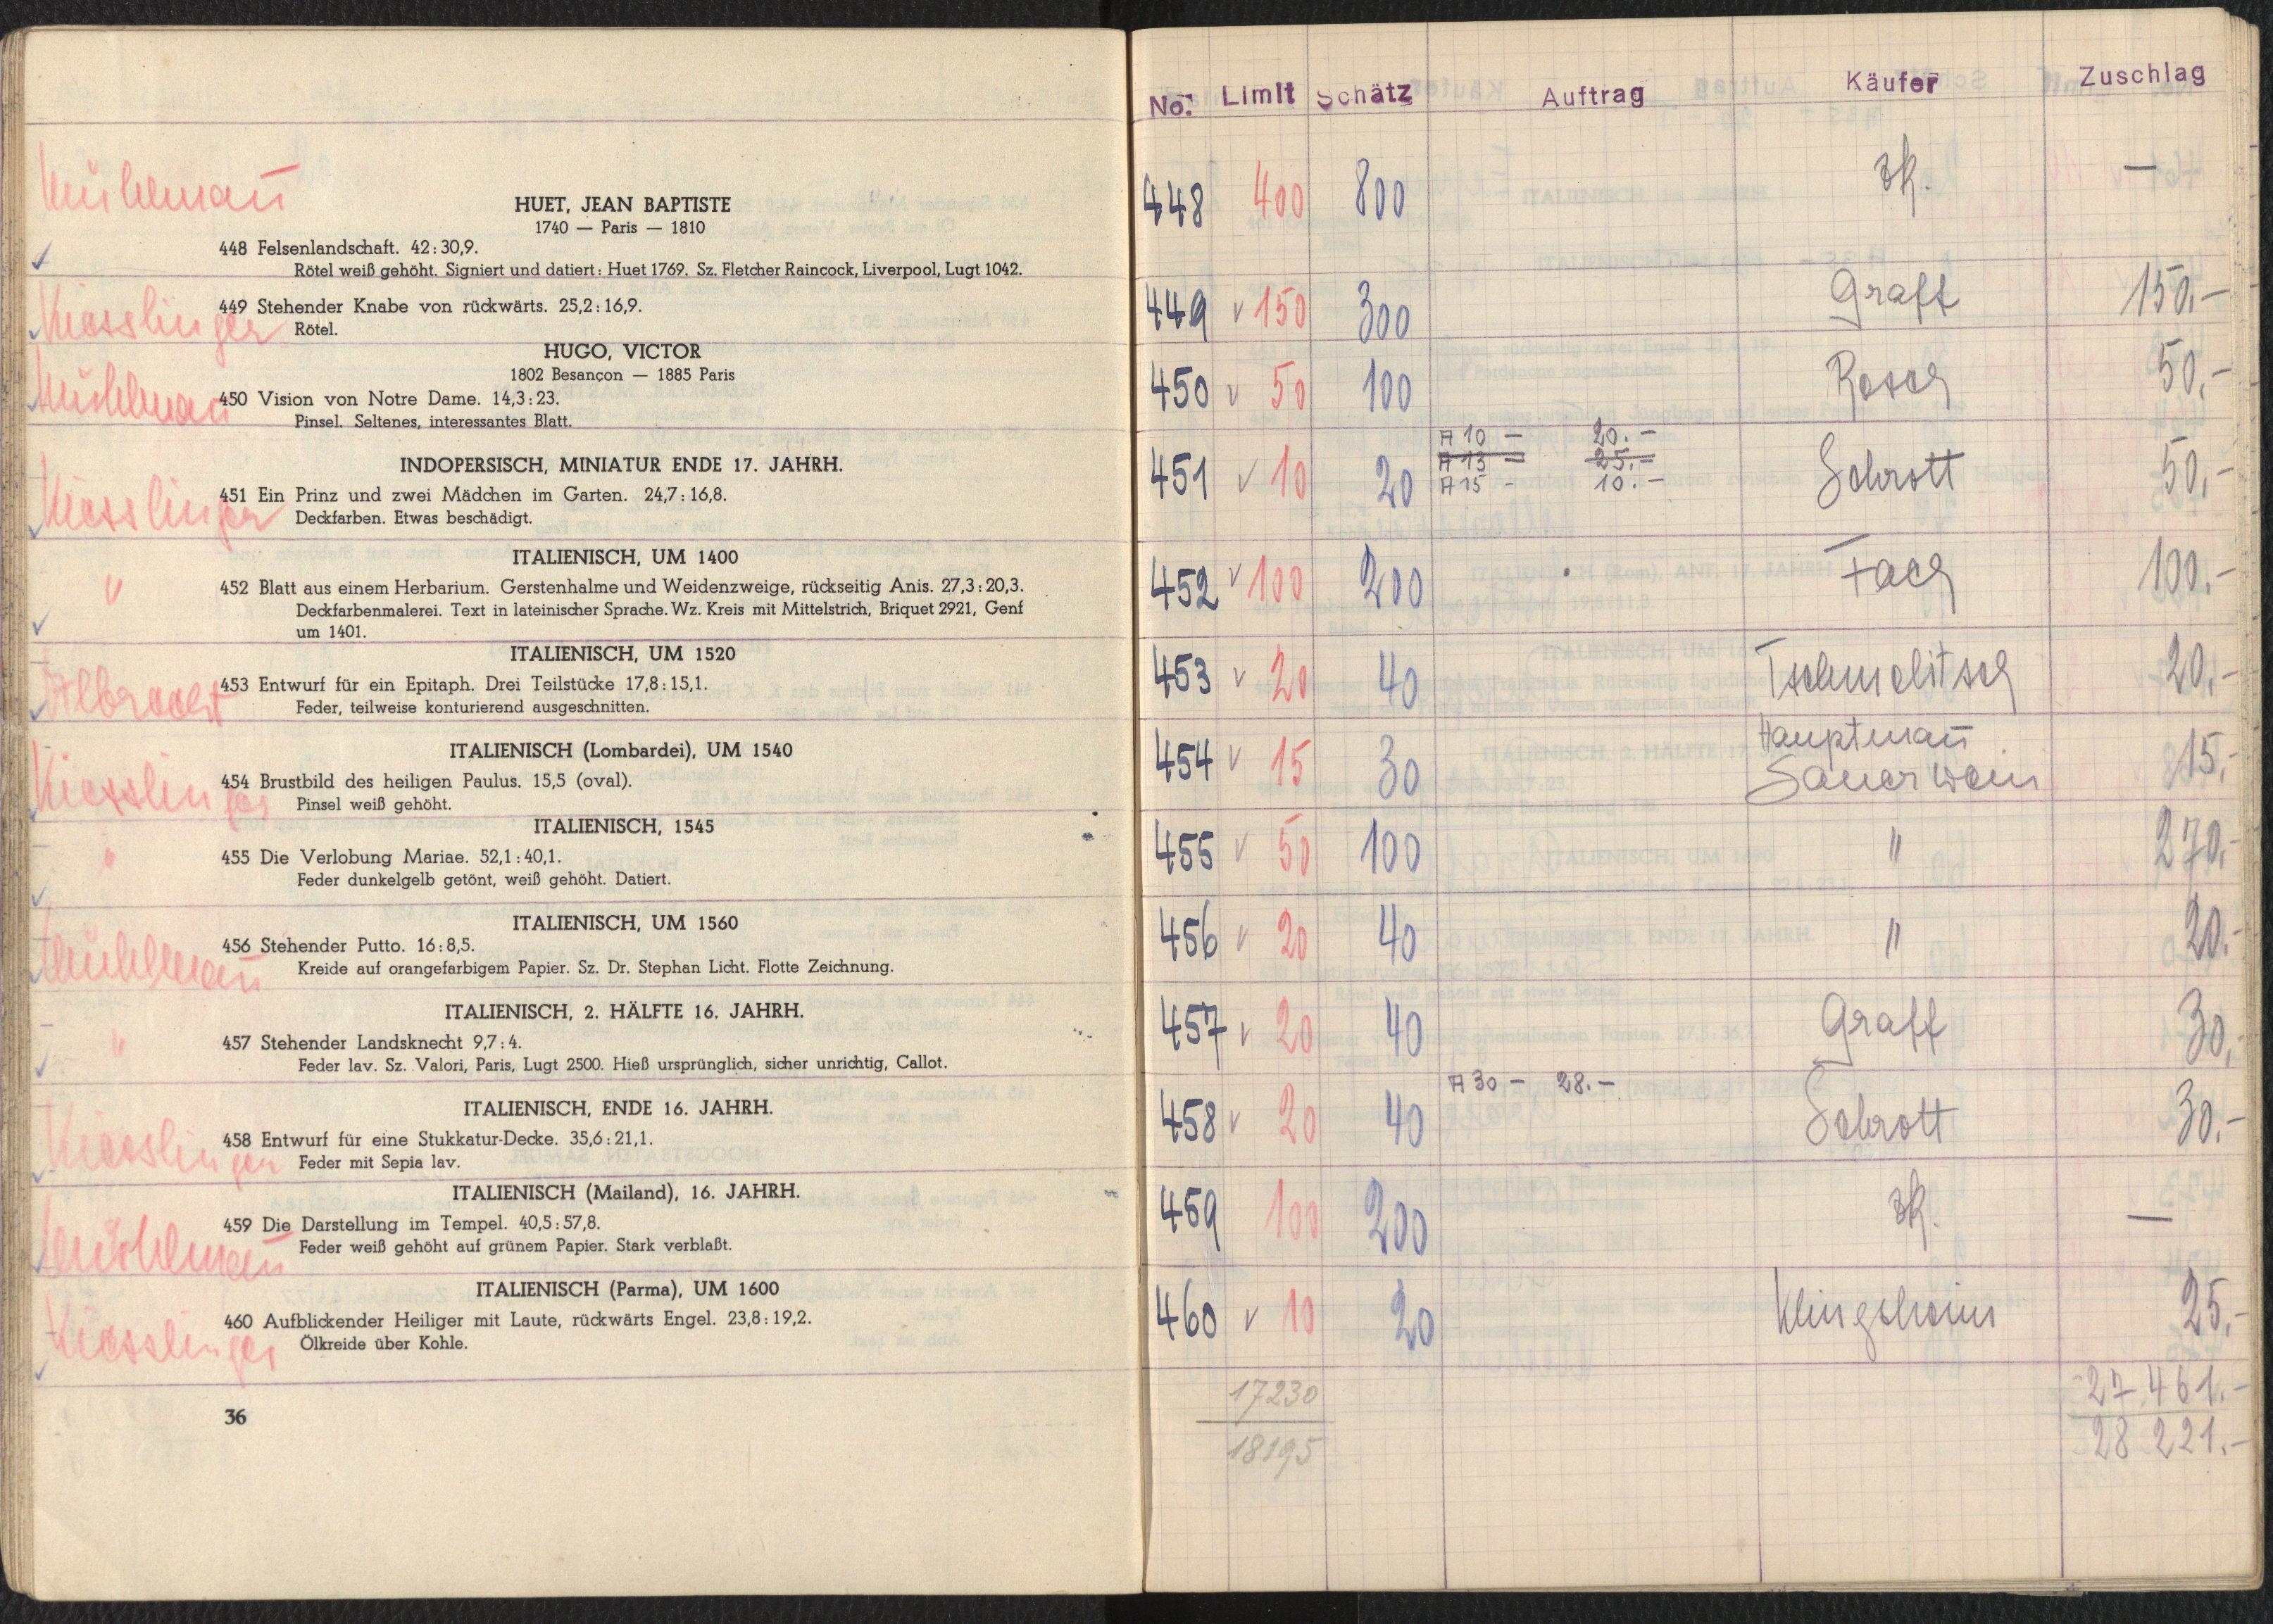 Mühlmañ
HUET, JEAN BAPTISTE
1740 — Paris — 1810
448 Felsenlandschaft. 42:30,9.
Rötel weiß gehöht. Signiert und datiert: Huet 1769. Sz. Fletcher Raincock, Liverpool, Lugt 1042.
Kiesslinger
449 Stehender Knabe von rückwärts. 25,2:16,9.
Rötel.
HUGO, VICTOR
1802 Besançon — 1885 Paris
Mühlmañ
450 Vision von Notre Dame. 14,3:23.
Pinsel. Seltenes, interessantes Blatt.
INDOPERSISCH, MINIATUR ENDE 17. JAHRH.
Kiesslinger
451 Ein Prinz und zwei Mädchen im Garten. 24,7:16,8.
Deckfarben. Etwas beschädigt.
ITALIENISCH, UM 1400
"
452 Blatt aus einem Herbarium. Gerstenhalme und Weidenzweige, rückseitig Anis. 27,3:20,3.
Deckfarbenmalerei. Text in lateinischer Sprache. Wz. Kreis mit Mittelstrich, Briquet 2921, Genf
um 1401.
ITALIENISCH, UM 1520
Albrecht
453 Entwurf für ein Epitaph. Drei Teilstücke 17,8:15,1.
Feder, teilweise konturierend ausgeschnitten.
ITALIENISCH (Lombardei), UM 1540
Kiesslinger
454 Brustbild des heiligen Paulus. 15,5 (oval).
Pinsel weiß gehöht.
ITALIENISCH, 1545
"
455 Die Verlobung Mariae. 52,1:40,1.
Feder dunkelgelb getönt, weiß gehöht. Datiert.
ITALIENISCH, UM 1560
Mühlmañ
456 Stehender Putto. 16:8,5.
Kreide auf orangefarbigem Papier. Sz. Dr. Stephan Licht. Flotte Zeichnung.
ITALIENISCH, 2. HÄLFTE 16. JAHRH.
"
457 Stehender Landsknecht 9,7:4.
Feder lav. Sz. Valori, Paris, Lugt 2500. Hieß ursprünglich, sicher unrichtig, Callot.
ITALIENISCH, ENDE 16. JAHRH.
Kiesslinger
458 Entwurf für eine Stukkatur-Decke. 35,6:21,1.
Feder mit Sepia lav.
ITALIENISCH (Mailand), 16. JAHRH.
Mühlmañ
459 Die Darstellung im Tempel. 40,5:57,8.
Feder weiß gehöht auf grünem Papier. Stark verblaßt.
ITALIENISCH (Parma), UM 1600
Kiesslinger
460 Aufblickender Heiliger mit Laute, rückwärts Engel. 23,8:19,2.
Ölkreide über Kohle.
36
No. Limit Schätz Auftrag Käufer Zuschlag
448 400 800 zk. —
449 v 150 300 Graff 150,-
450 v 50 100 Rosch 50,-
A 10 - 20.-
A 13 - 25.-
451 v 10 20 A 15 - 10.- Schrott 50,-
452 v 100 200 Fach 100,-
453 v 20 40 Tschmelitsch 20,-
454 v 15 30 Hauptmañ Sauerwein 15,-
455 v 50 100 " 270,-
456 v 20 40 " 20.-
457 v 20 40 Graff 30,-
A 30 - 28.-
458 v 20 40 Schrott 30.-
459 100 200 zk. —
460 v 10 20 Klingsheim 25,-
17230 27 461.-
18195 28 221.-